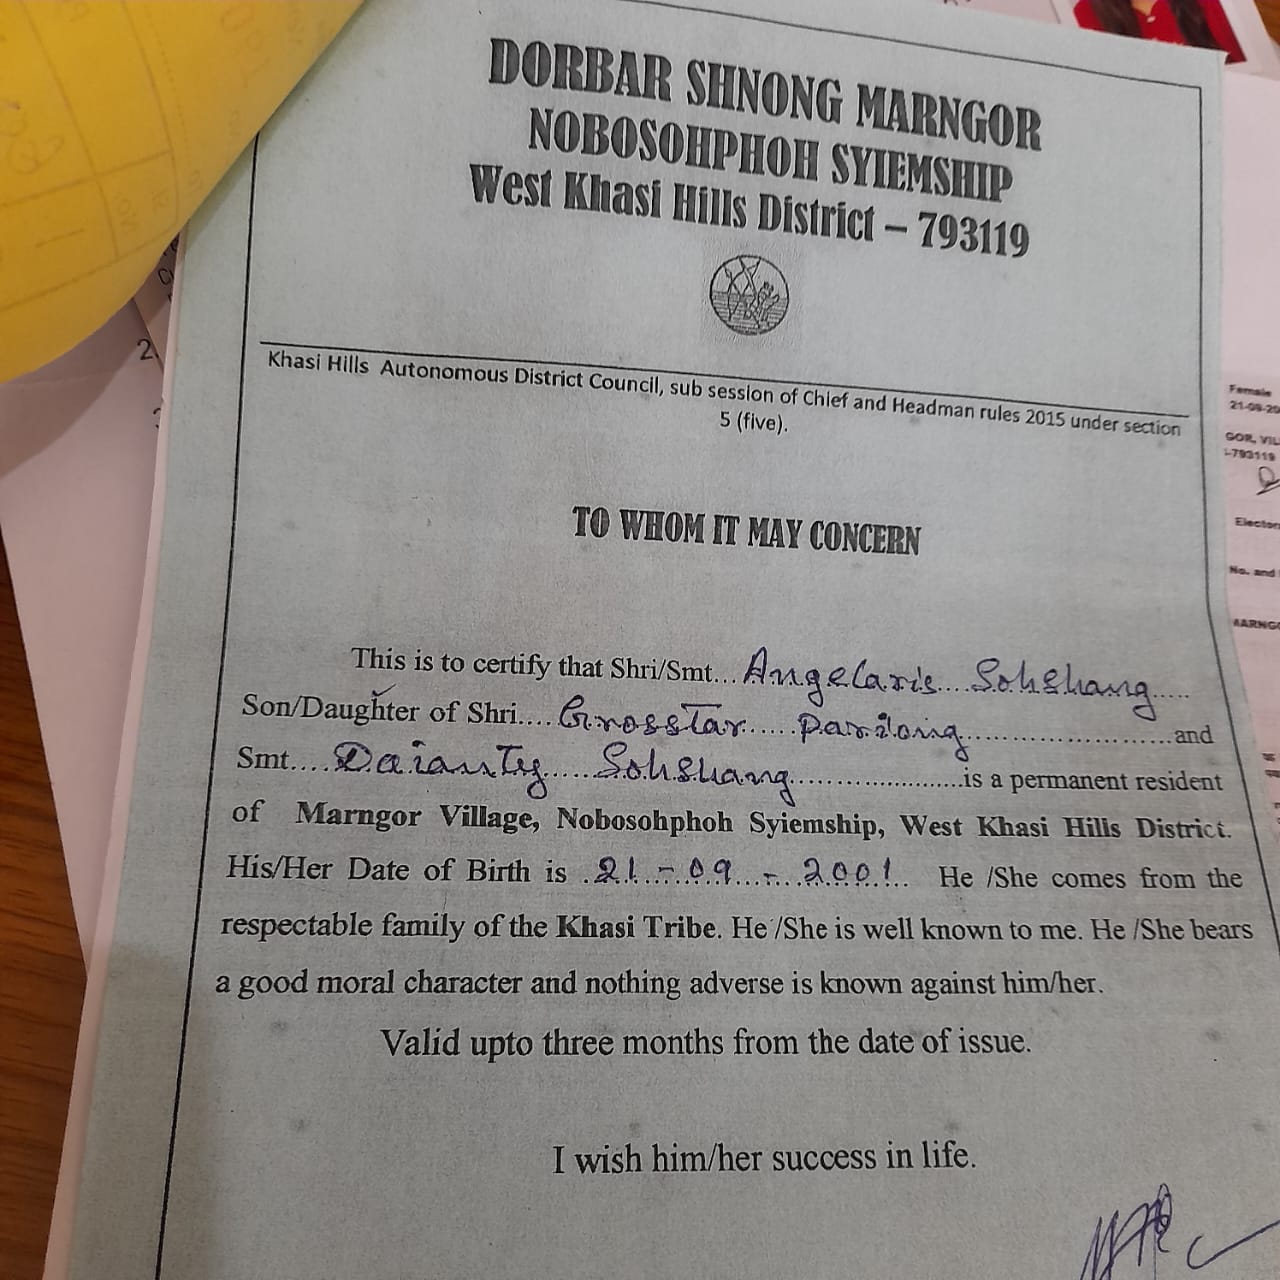 DORBAR SHNONG MARNGOR
NOBOSOHPHOH SYIEMSHIP
West Khasi Hills District – 793119
Khasi Hills Autonomous District Council, sub session of Chief and Headman rules 2015 under section
5 (five).
TO WHOM IT MAY CONCERN
This is to certify that Shri/Smt... Angelaris .... Sohshang .....
Son/Daughter of Shri.... Grosstar ...... Pariong ........................and
Smt.... Daianty ..... Sohshang ......................is a permanent resident
of Marngor Village, Nobosohphoh Syiemship, West Khasi Hills District.
His/Her Date of Birth is .21 - 09 - 2001.. He /She comes from the
respectable family of the Khasi Tribe. He /She is well known to me. He /She bears
a good moral character and nothing adverse is known against him/her.
Valid upto three months from the date of issue.
I wish him/her success in life.
2.
Female
21-09-20
GOR, VIL
-793119
Elector
No. and
MARNGO